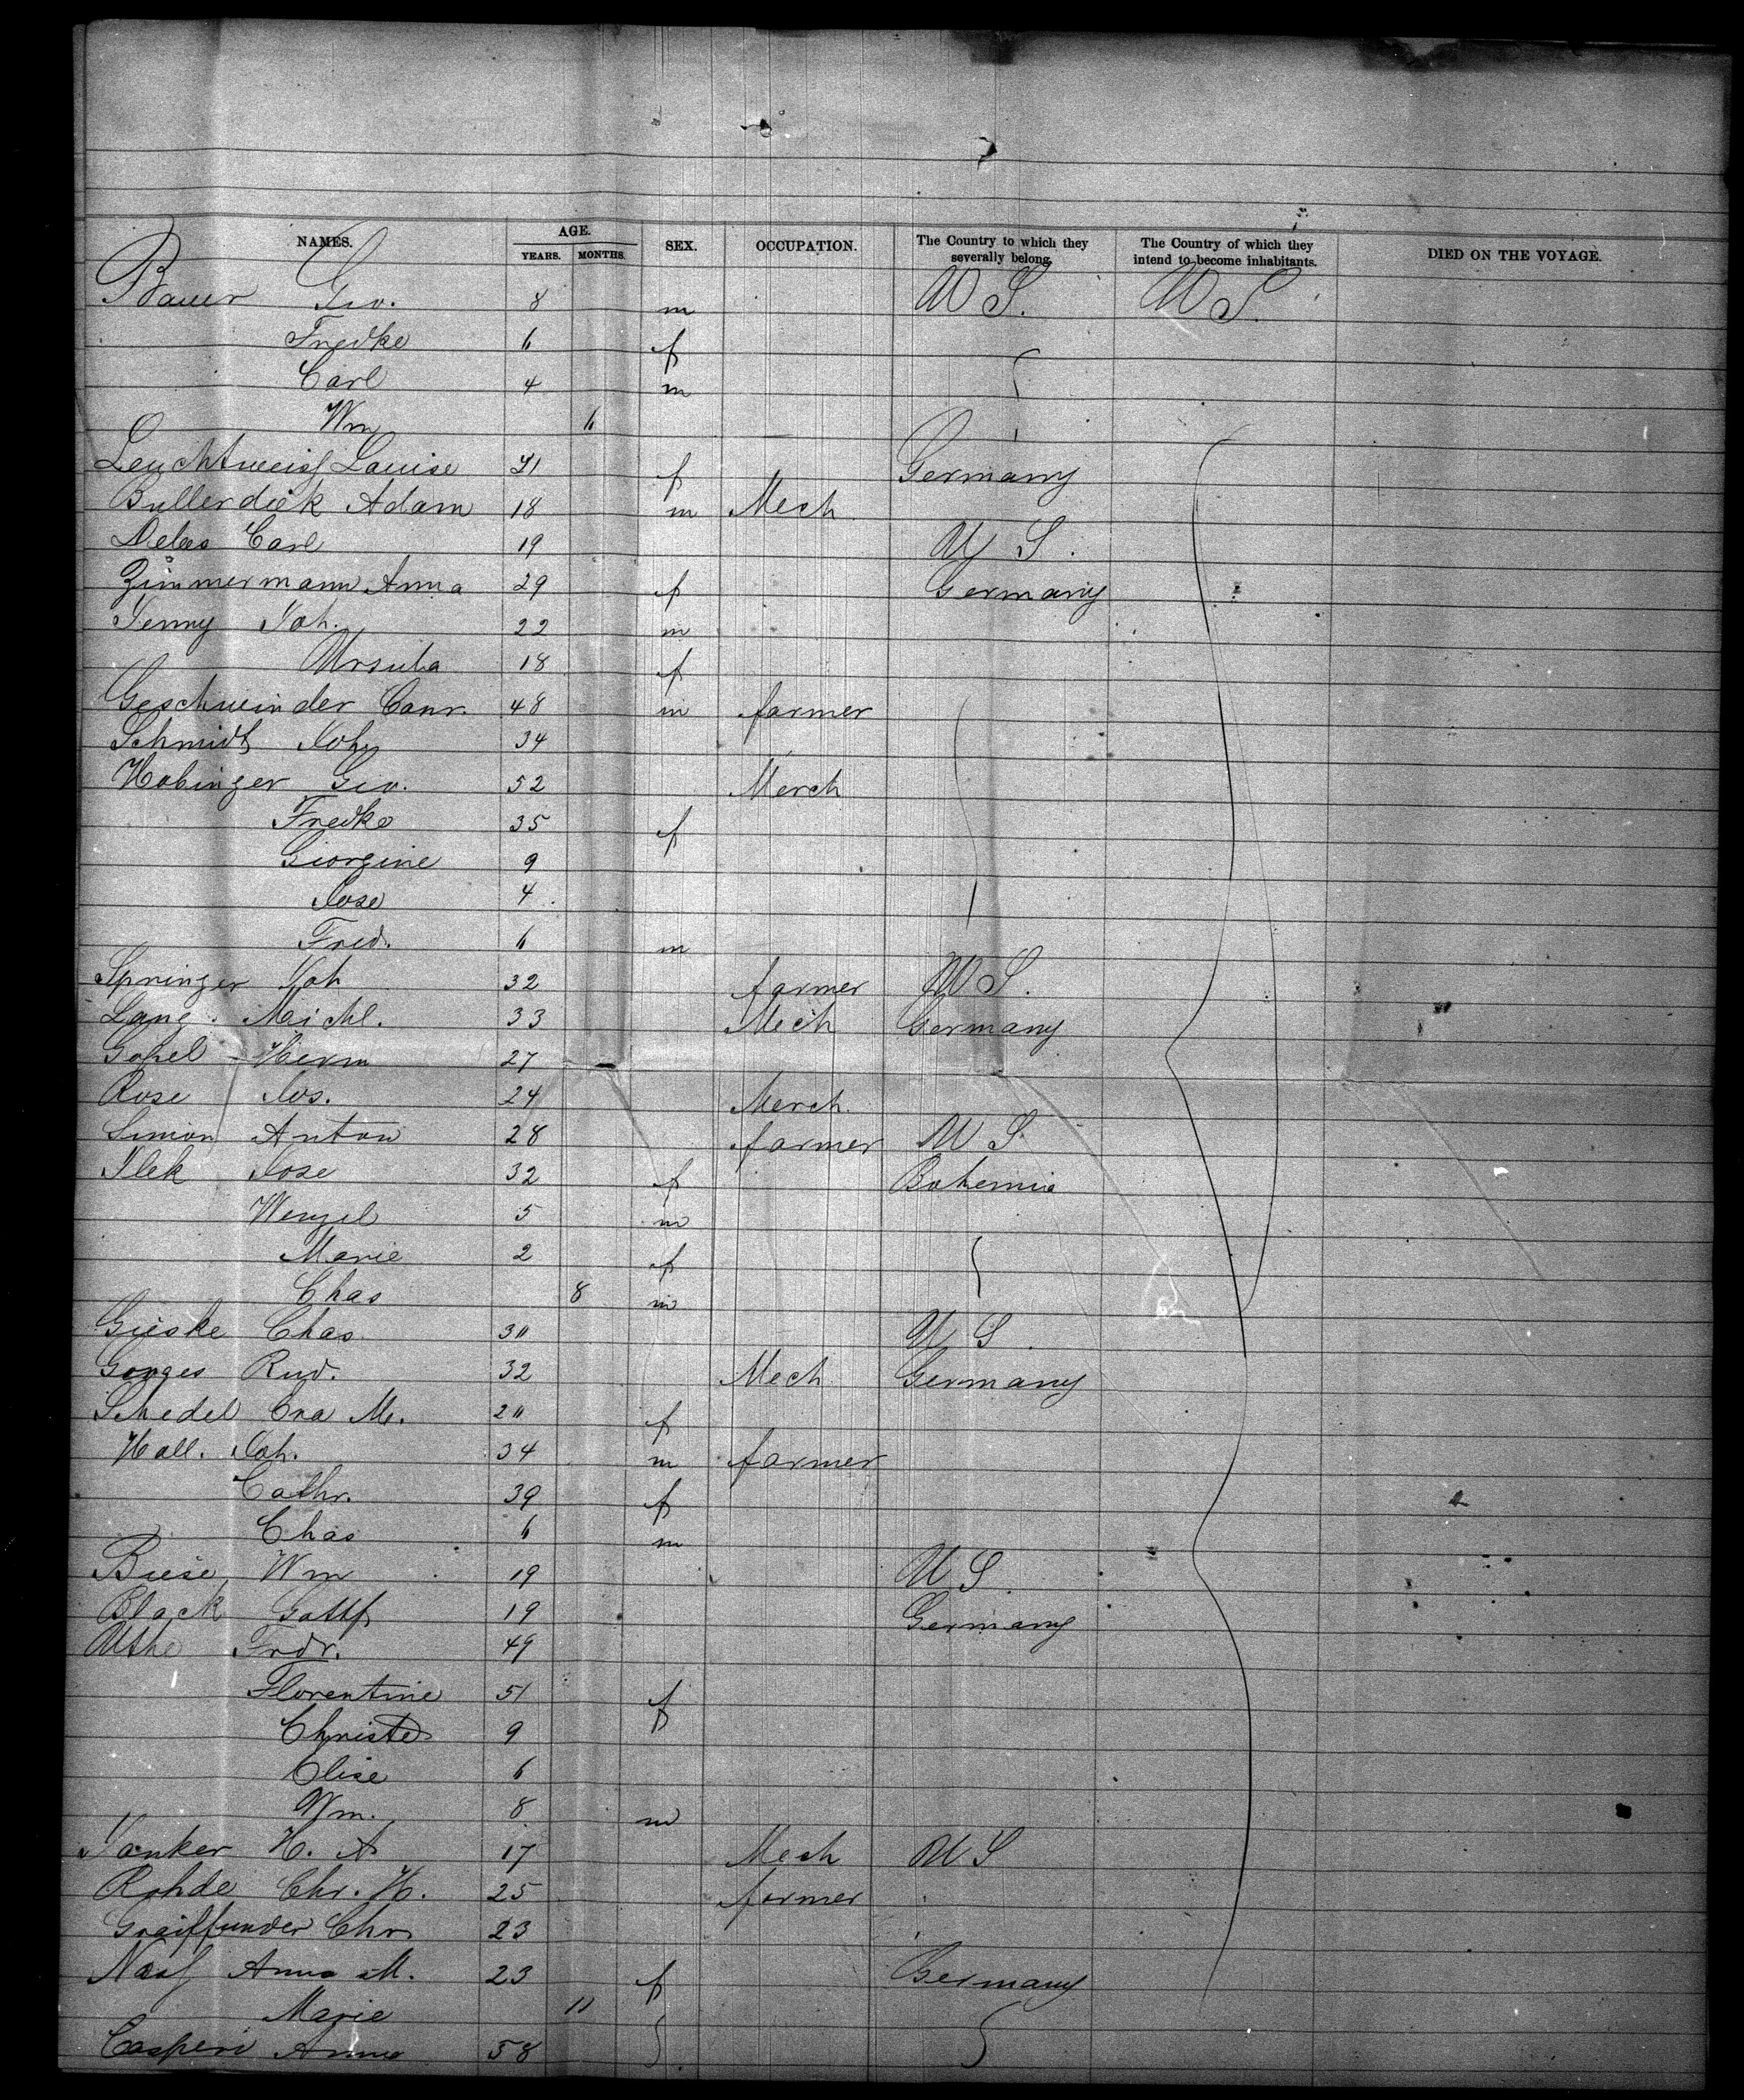 NAMES. AGE. YEARS. MONTHS. SEX. OCCUPATION. The Country to which they severally belong. The Country of which they intend to become inhabitants. DIED ON THE VOYAGE.
Bauer Geo. 8 m U S. U S.
Fredke 6 f
Carl 4 m
Wm 6
Leuchtweiss Louise 21 f Germany
Bullerdiek Adam 18 m Mech
Carl 19 U S.
Zimmermann Anna 29 f Germany
Jenny Joh. 22 m
Ursula 18 f
Geschwinder Conr. 48 m farmer
Schmidt John 34
Habinger Geo. 52 Merch
Fredke 35 f
Georgine 9
Jose 4
Fred. 6 m
Springer Joh 32 farmer U S.
Lang Michl. 33 Mech Germany
Gopel Herm 27
Rose Jos. 24 Merch.
Simon Anton 28 farmer U S
Ilek Jose 32 f Bohemia
Wenzel 5 m
Marie 2 f
Chas 8 m
Gieske Chas 30 U S.
Gorges Rud. 32 Mech Germany
Schedel Eva M. 20 f
Hall. Joh. 34 m farmer
Cathr. 39 f
Chas 6 m
Biese Wm 19 U S.
Black Gottf 19 Germany
Uthe Frdr. 49
Florentine 51 f
Christe 9 f
Elise 6
Wm. 8 m
Janker H. A 17 Mech U S
Rohde Chr. H. 25 farmer
Graiffunder Chr 23
Nass Anna M. 23 f Germany
Marie 11
Casperi Anna 58